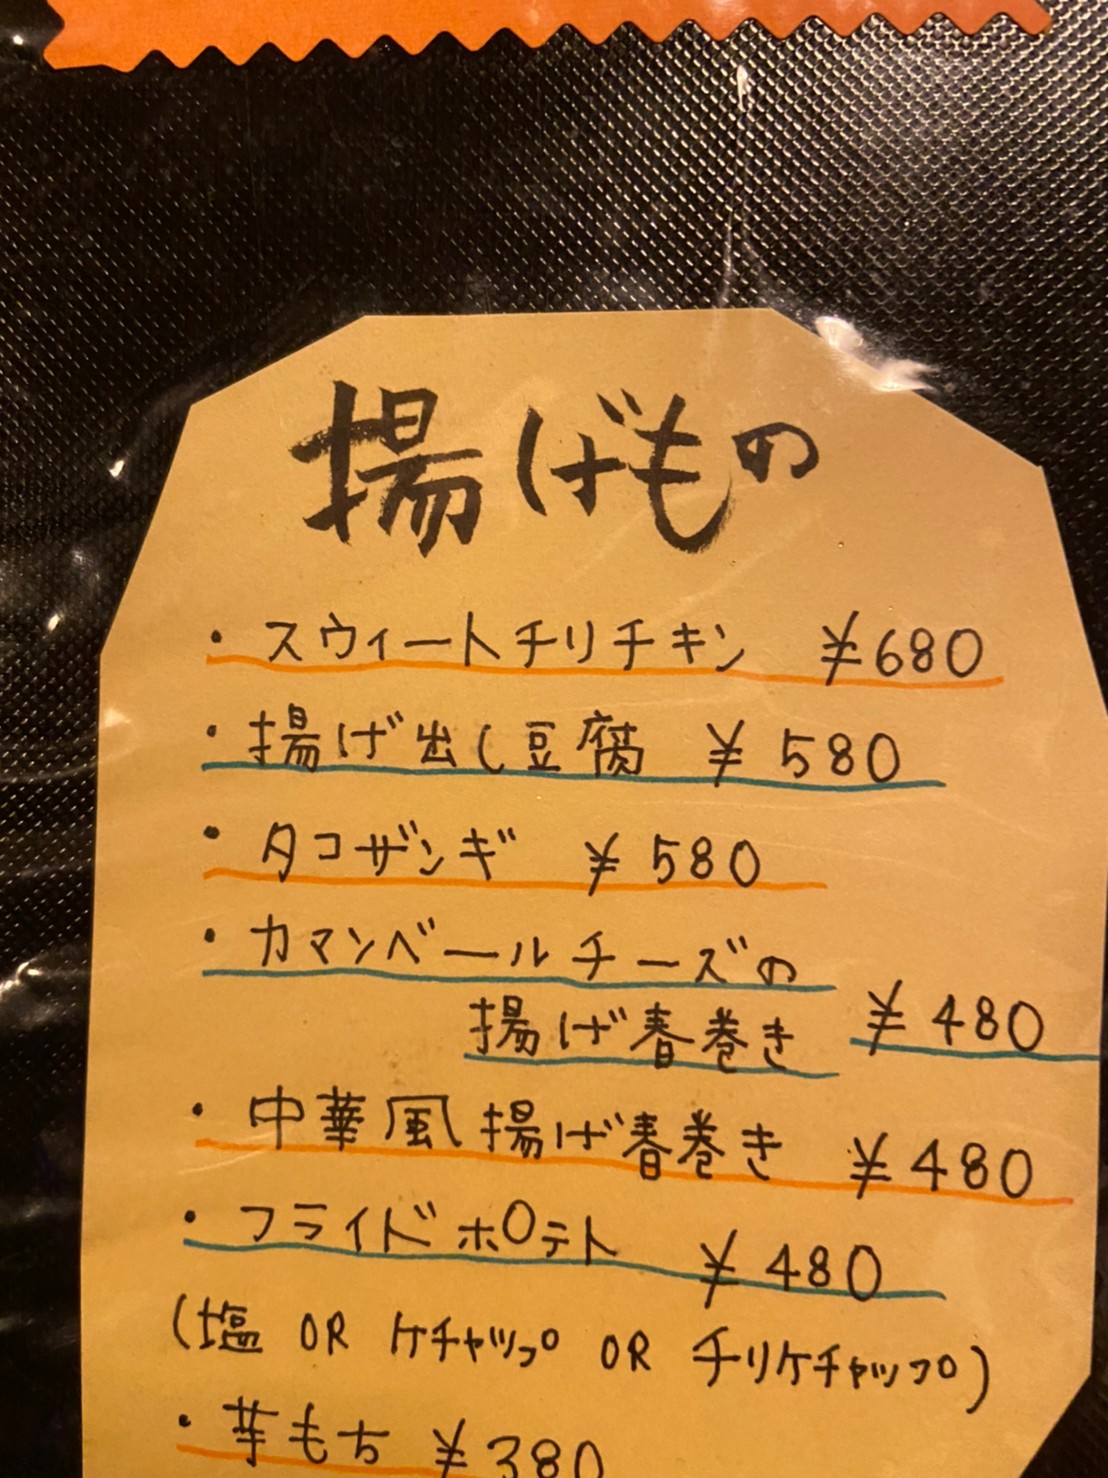 揚げもの
・スウィートチリチキン ¥680
・揚げ出し豆腐 ¥580
・タコザンギ ¥580
・カマンベールチーズの
揚げ春巻き ¥480
・中華風揚げ春巻き ¥480
・フライドポテト ¥480
(塩 OR ケチャップ OR チリケチャップ)
・芋もち ¥380